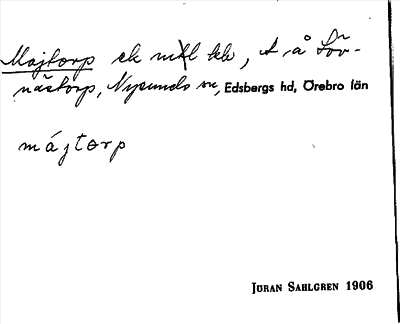 Majtorp
nästorp, Nysunds sn, Edsbergs hd, Örebro län
májtorp
JÖRAN SAHLGREN 1906